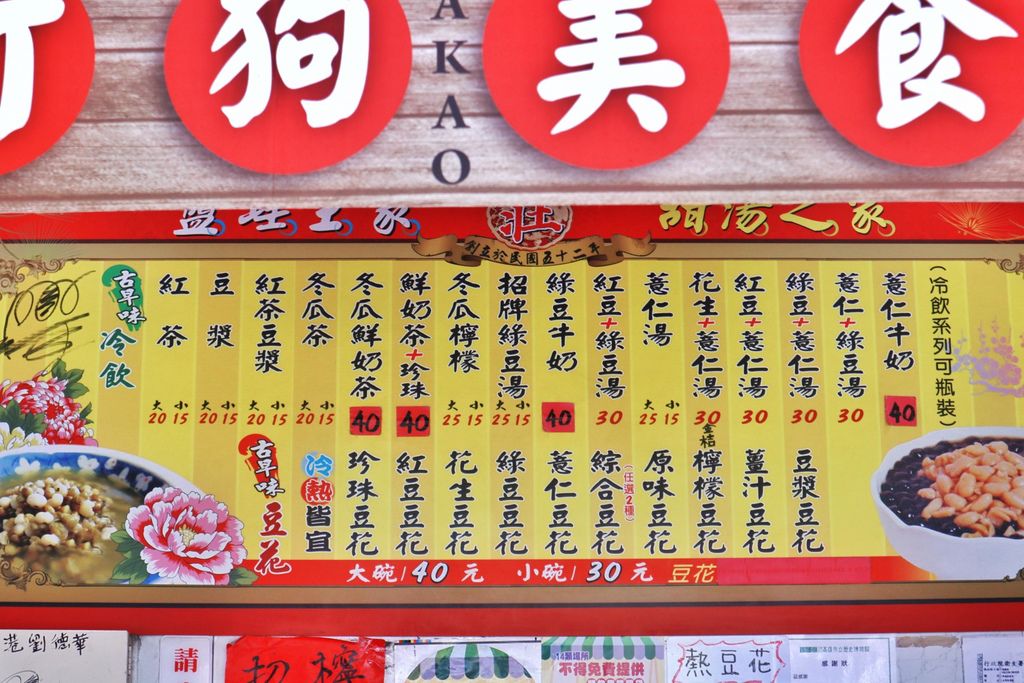 狗美食
AKAO
甜湯之家
莊
創立於民國五十二年
古早味
冷飲
紅茶
大20 小15
豆漿
大20 小15
紅茶豆漿
大20 小15
冬瓜茶
大20 小15
冬瓜鮮奶茶
40
鮮奶茶+珍珠
40
冬瓜檸檬
大25 小15
招牌綠豆湯
大25 小15
綠豆牛奶
40
紅豆+綠豆湯
30
薏仁湯
大25 小15
花生+薏仁湯
30
紅豆+薏仁湯
30
綠豆+薏仁湯
30
薏仁+綠豆湯
30
薏仁牛奶
40
(冷飲系列可瓶裝)
古早味
豆花
冷熱皆宜
珍珠豆花
紅豆豆花
花生豆花
綠豆豆花
薏仁豆花
綜合豆花
(任選2種)
原味豆花
金桔檸檬豆花
薑汁豆花
豆漿豆花
大碗/40元 小碗/30元 豆花
港劉德華
請
切檸
14類場所
不得免費提供
熱豆花
感謝狀